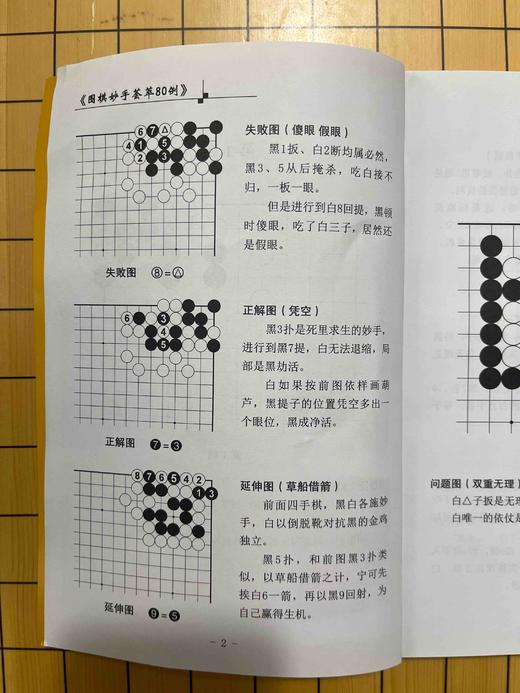 《围棋妙手荟萃80例》
6 7 △
4 1 5
2 3
失败图 ⑧=△
失败图（傻眼 假眼）
黑1扳、白2断均属必然，
黑3、5从后掩杀，吃白接不
归，一板一眼。
但是进行到白8回提，黑顿
时傻眼，吃了白三子，居然还
是假眼。
6 3
1 4 2
5
正解图 ❼=❸
正解图（凭空）
黑3扑是死里求生的妙手，
进行到黑7提，白无法退缩，局
部是黑劫活。
白如果按前图依样画葫
芦，黑提子的位置凭空多出一
个眼位，黑成净活。
8 7 6 5 4 2
1 3
延伸图 ❾=❺
延伸图（草船借箭）
前面四手棋，黑白各施妙
手，白以倒脱靴对抗黑的金鸡
独立。
黑5扑，和前图黑3扑类
似，以草船借箭之计，宁可先
挨白6一箭，再以黑9回射，为
自己赢得生机。
- 2 -
问题图（双重无理）
白△子扳是无理
白唯一的依仗是